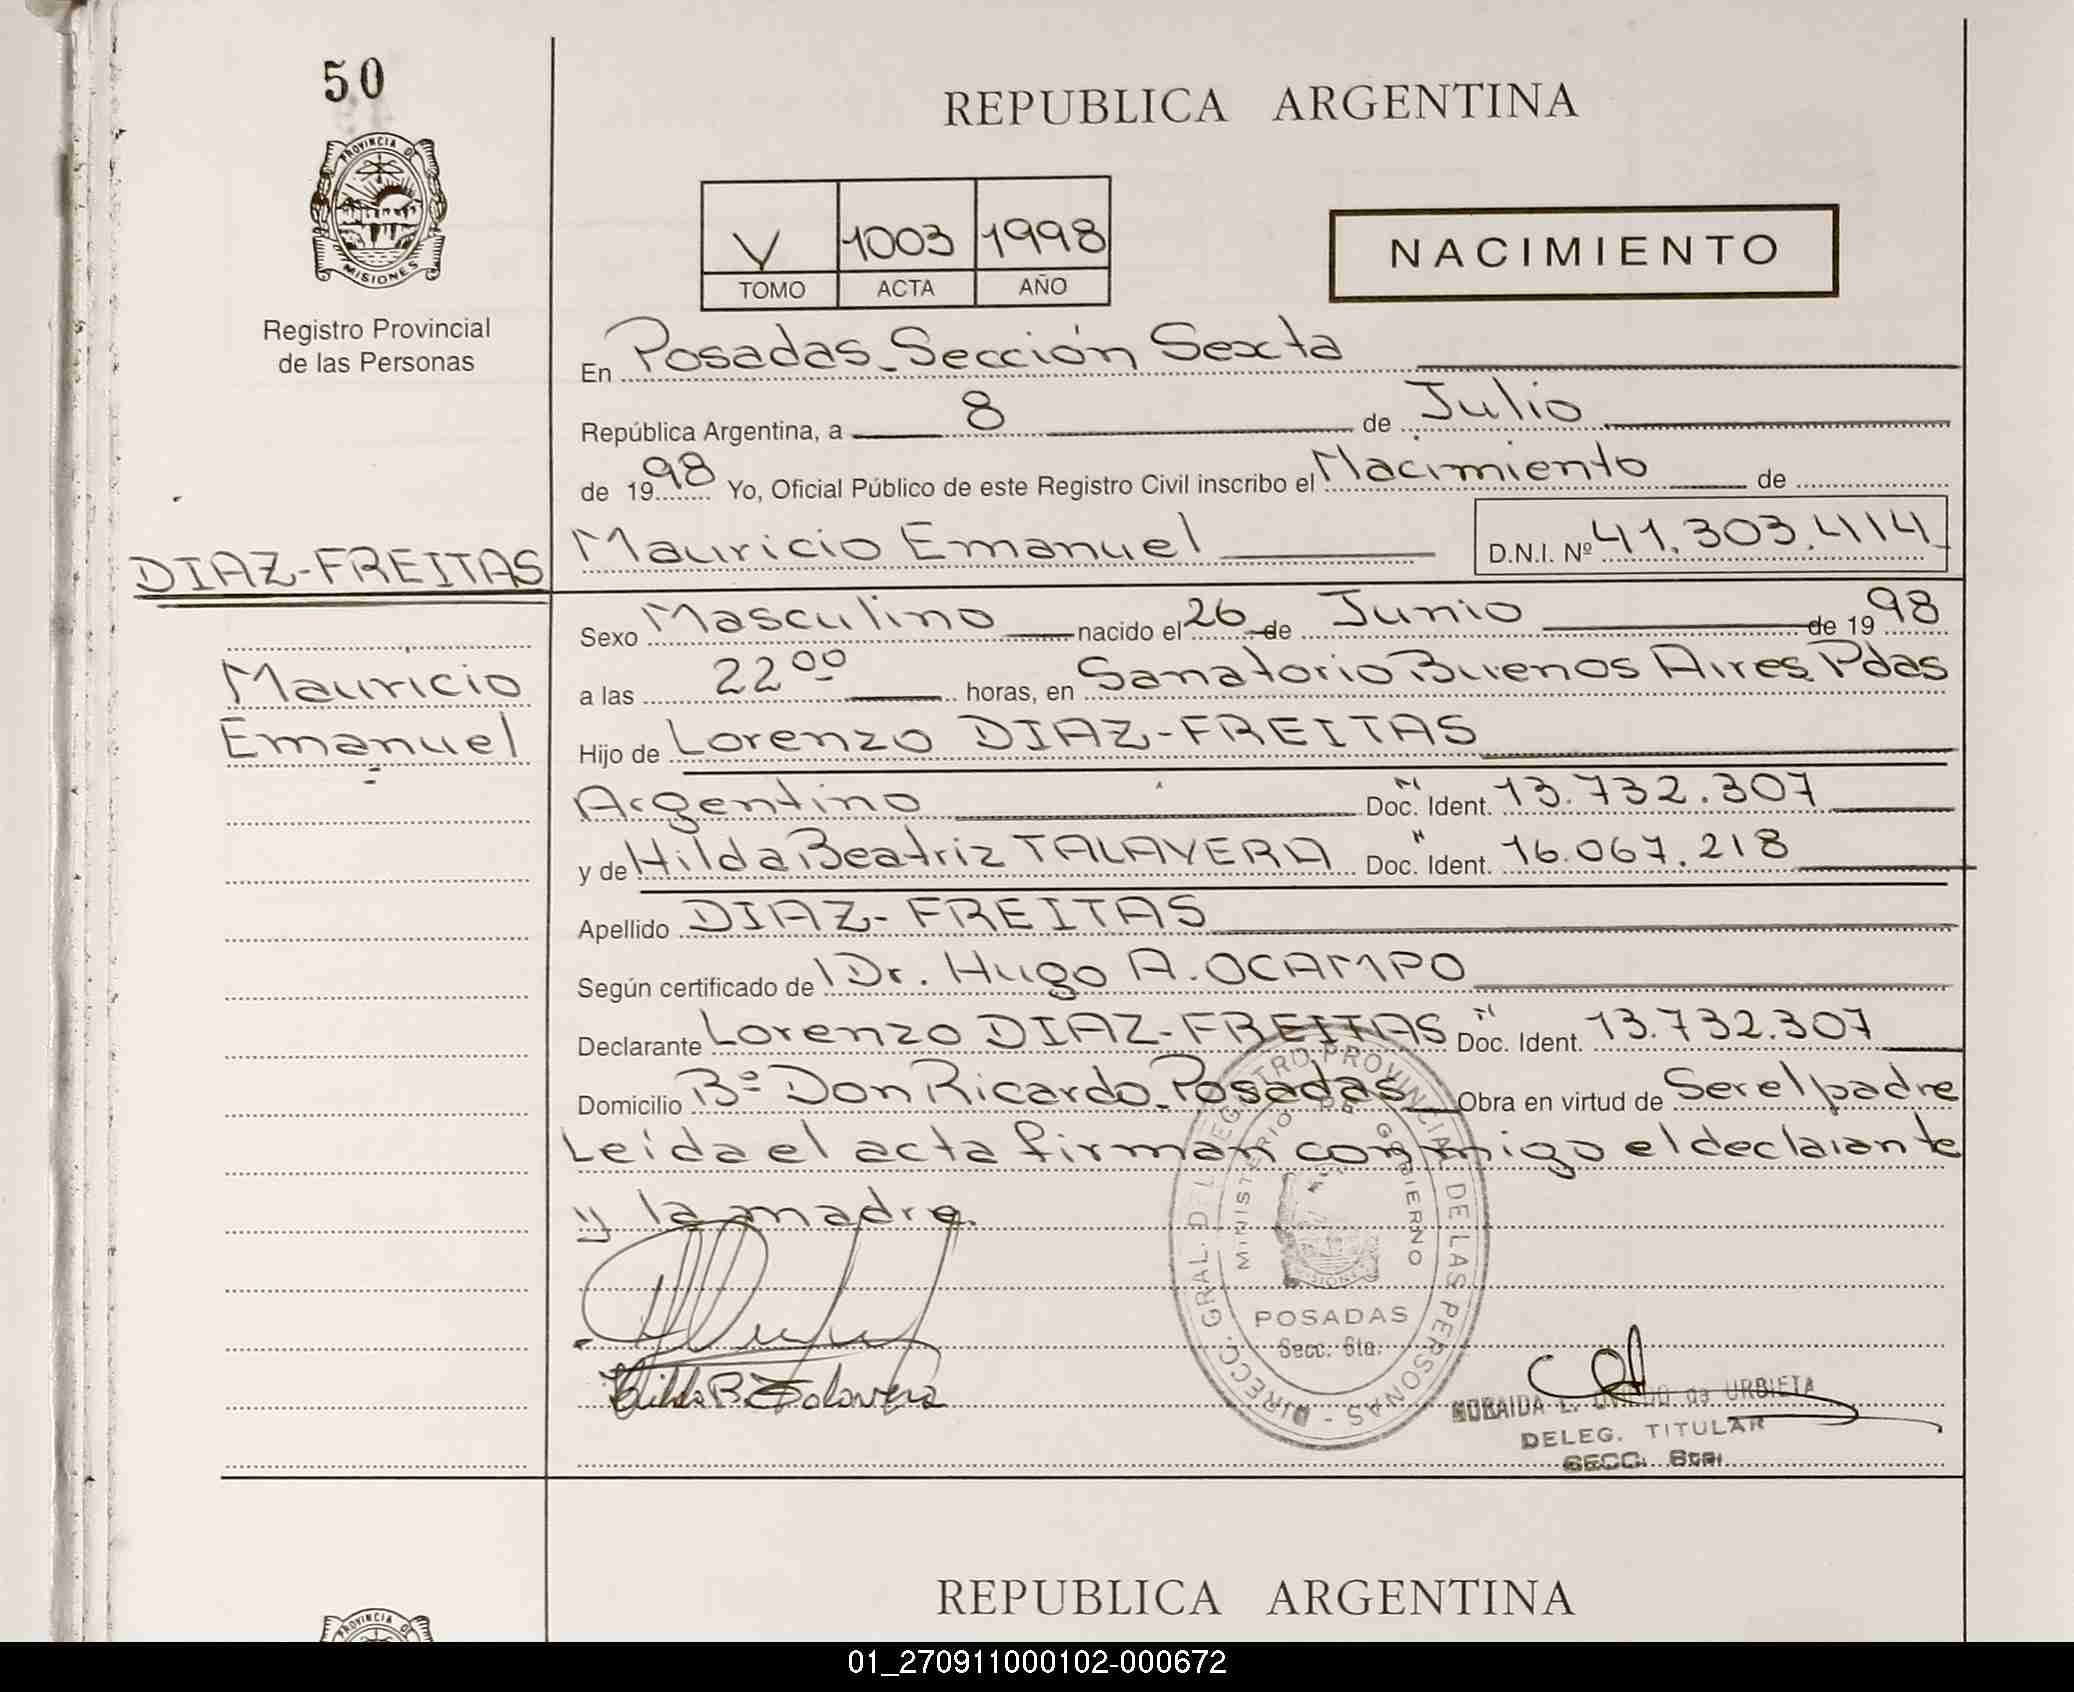 50
REPUBLICA ARGENTINA
PROVINCIA DE
MISIONES
V 1003 1998
TOMO ACTA AÑO
NACIMIENTO
Registro Provincial
de las Personas
En Posadas-Sección Sexta
República Argentina, a 8 de Julio
de 1998 Yo, Oficial Público de este Registro Civil inscribo el Nacimiento de
DIAZ-FREITAS Mauricio Emanuel D.N.I. Nº 41.303.414
Sexo Masculino nacido el 26 de Junio de 1998
Mauricio a las 22ºº horas, en Sanatorio Buenos Aires Pdas
Emanuel Hijo de Lorenzo DIAZ-FREITAS
Argentino Doc. Ident. 13.732.307
y de Hilda Beatriz TALAVERA Doc. Ident. 16.067.218
Apellido DIAZ-FREITAS
Según certificado de Dr. Hugo A. OCAMPO
Declarante Lorenzo DIAZ-FREITAS Doc. Ident. 13.732.307
Domicilio Bº Don Ricardo-Posadas Obra en virtud de Ser el padre
Leída el acta firman conmigo el declarante
y la madre.
DIRECC. GRAL. DEL REGISTRO PROVINCIAL DE LAS PERSONAS -
MINISTERIO DE GOBIERNO
POSADAS
Secc. 6ta.
Hilda B Talavera
URBIETA
DELEG. TITULAR
SECC. 6ta.
REPUBLICA ARGENTINA
PROVINCIA DE
01_270911000102-000672